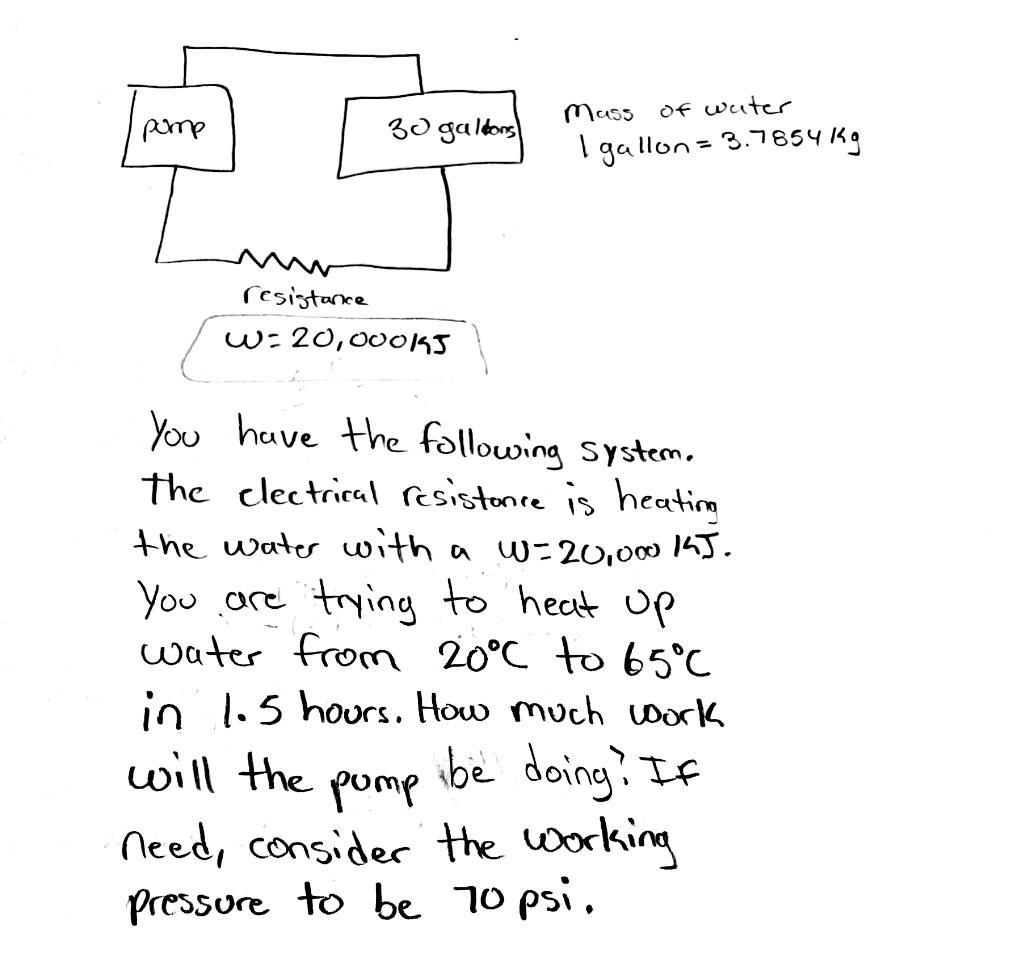 pump
30 gallons
Mass of water
1 gallon = 3.7854 kg
resistance
W = 20,000 KJ
You have the following system.
The electrical resistance is heating
the water with a W=20,000 KJ.
You are trying to heat up
water from 20°C to 65°C
in 1.5 hours. How much work
will the pump be doing? If
need, consider the working
pressure to be 70 psi.